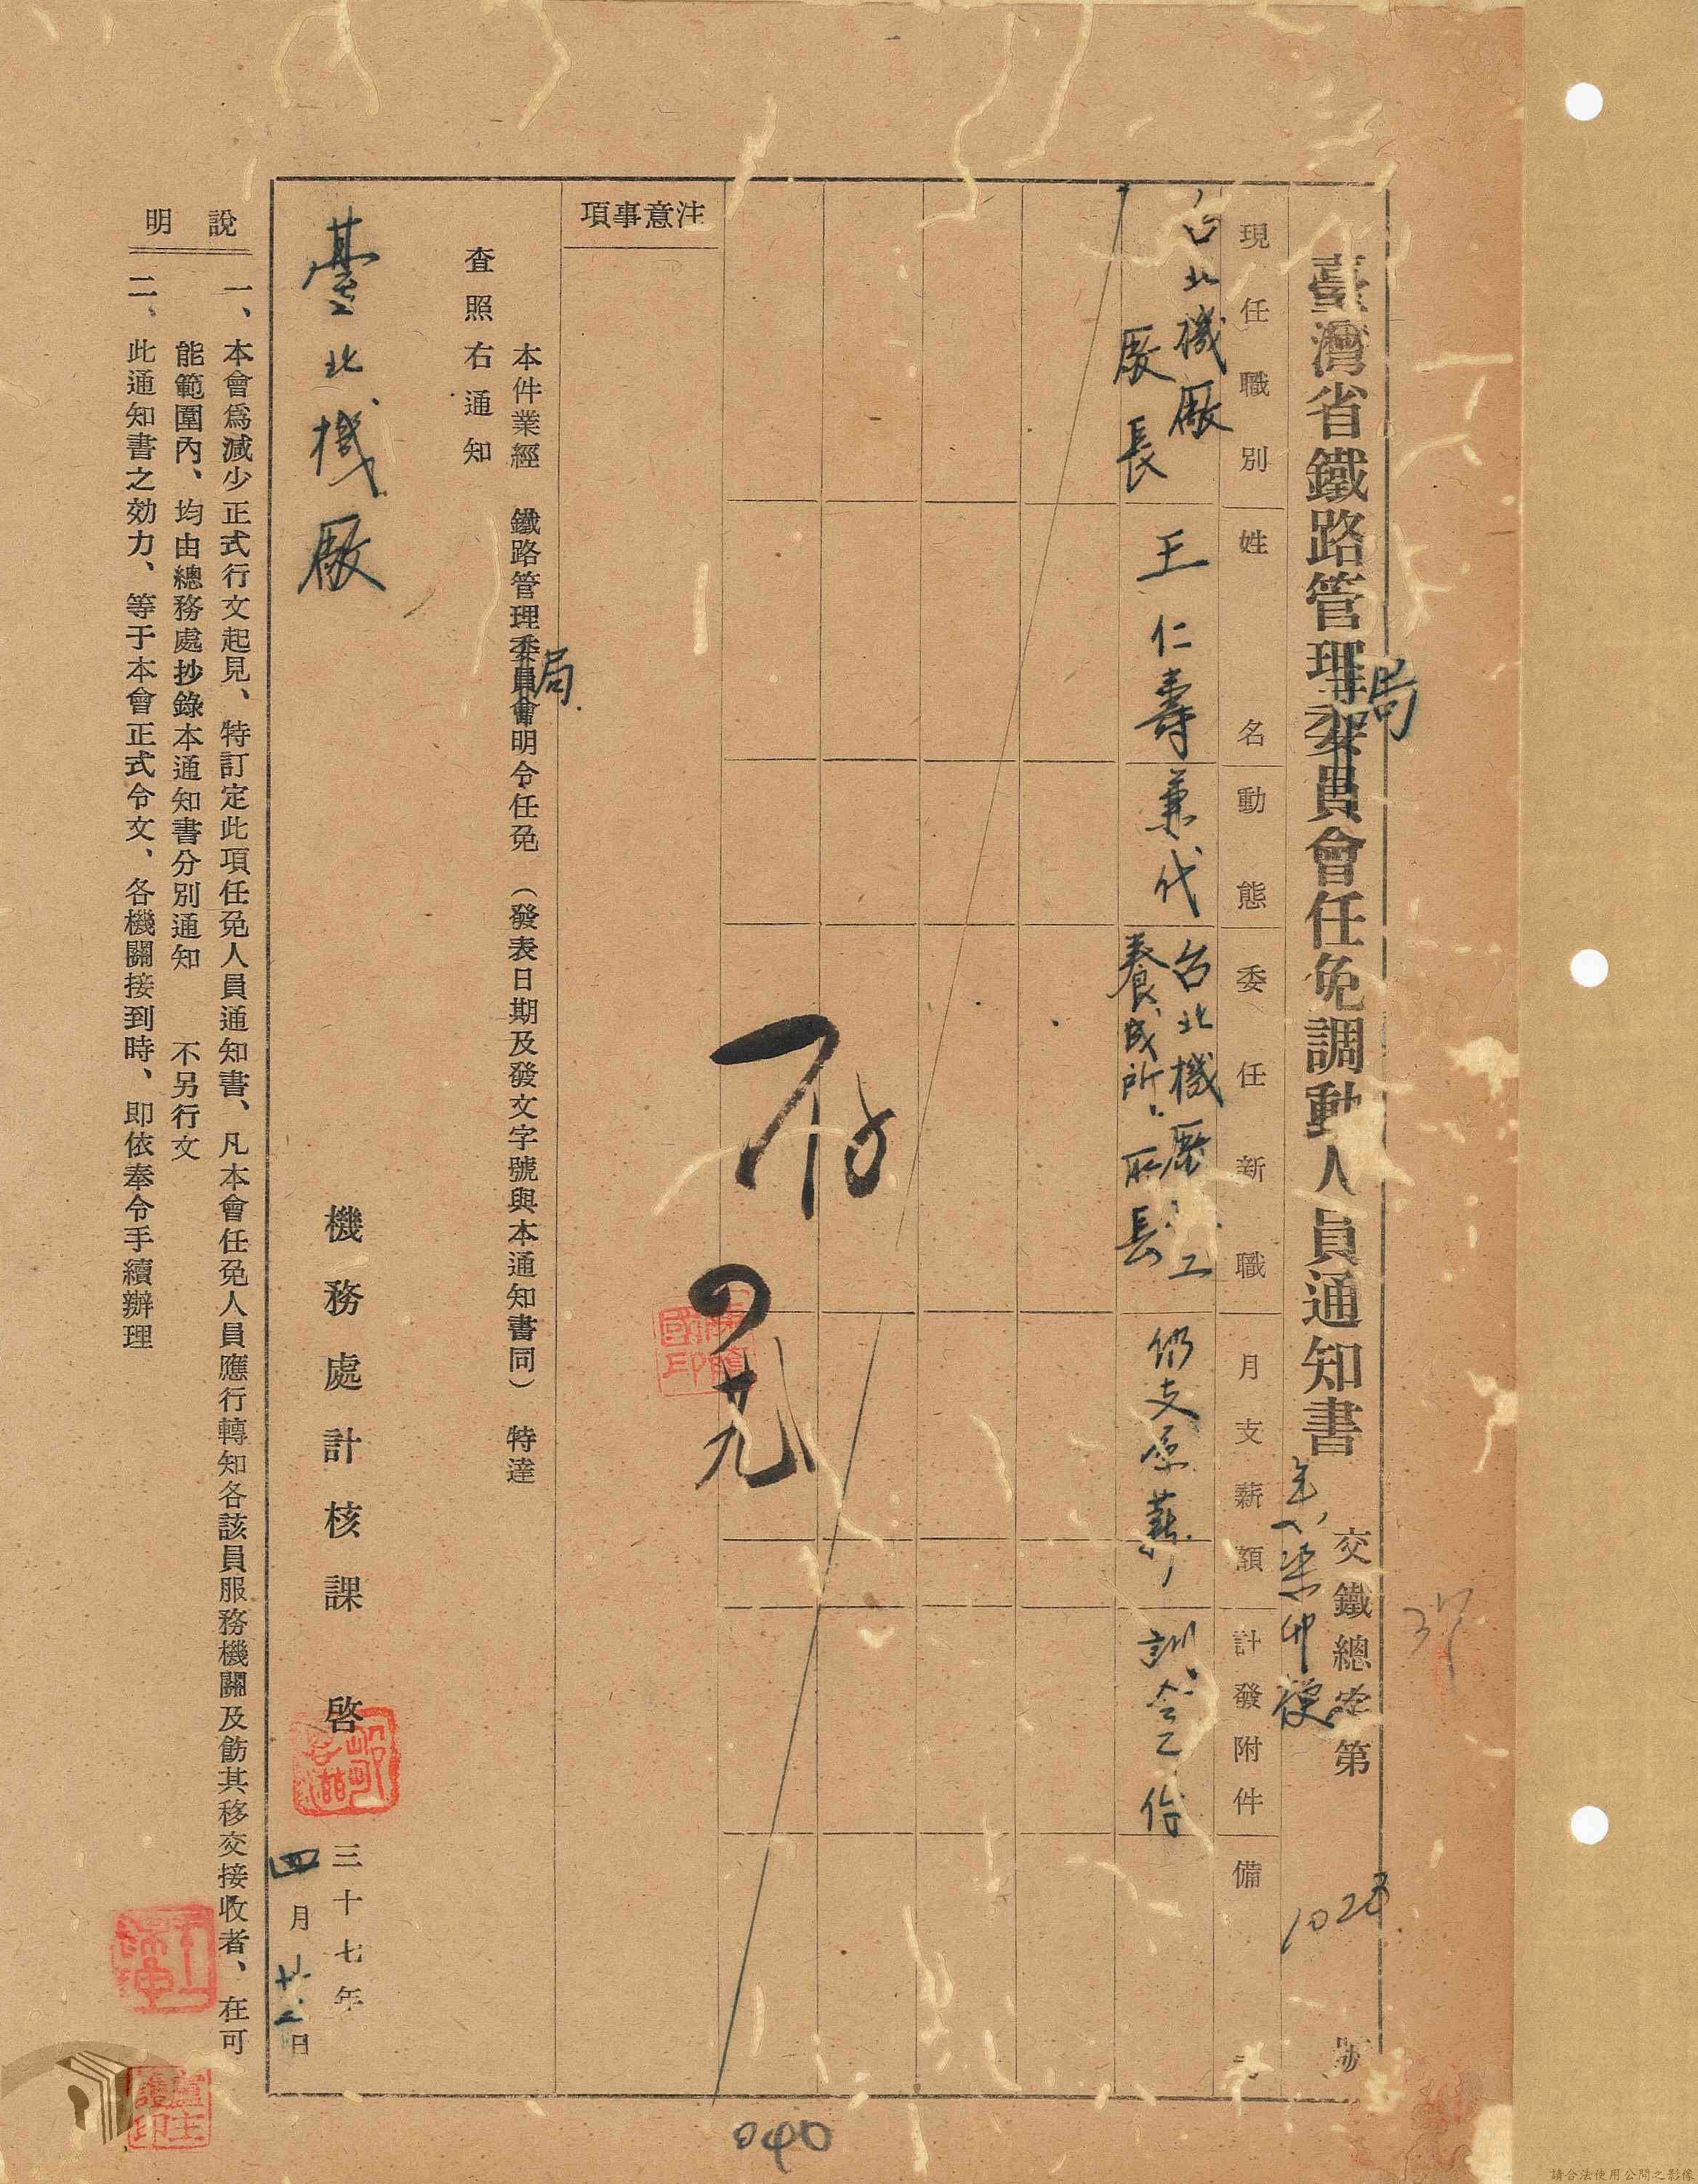 臺灣省鐵路管理委員會任免調動人員通知書
局
交鐵總 第 號
卯
1028
37
現任職別
姓名
動態
委任新職
月支薪額
計發附件
備考
台北機廠
廠長
王仁壽
兼代
台北機廠 工
養成所所長
仍支原薪
訓令乙份
存
廿九
注意事項
本件業經 鐵路管理委員會明令任免 (發表日期及發文字號與本通知書同) 特達
局
查照右通知
臺北機廠
機務處計核課 啓
三十七年
四月廿二日
說明
一、本會爲減少正式行文起見、特訂定此項任免人員通知書、凡本會任免人員應行轉知各該員服務機關及飭其移交接收者、在可
能範圍內、均由總務處抄錄本通知書分別通知 不另行文
二、此通知書之効力、等于本會正式令文、各機關接到時、即依奉令手續辦理
040
請合法使用公開之影像